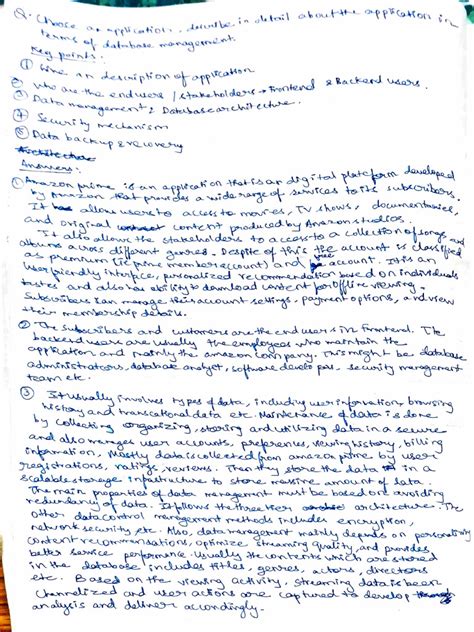 Q. Choose an application, describe in detail about the application in
terms of database management.
Key points:
① Give an description of application
② Who are the endusers / stakeholders → Frontend & Backend users.
③ Data management: Database architecture.
④ Security mechanism
⑤ Data backup & recovery
Answers:
① Amazon prime is an application that is an digital plateform developed
by Amazon that provides a wide range of services to its subscribers.
It allow users to access to movies, TV shows, documentaries,
and original content produced by Amazon studios.
It also allow the stakeholders to access to a collection of songs and
albums across different genres. Despite of this the account is classified
as premium (ie prime member account) and free account. It is an
user friendly interface, personalised recommendation based on individuals
tastes and also the ability to download content for offline viewing.
Subscribers can manage this account settings, payment options, and view
their membership details.
② The subscribers and customers are the end users in Frontend. The
backend users are usually the employees who maintain the
application and mainly the amazon company. This might be database
administrators, database analyst, software developers, security management
team etc.
③ It usually involves types of data, including user information, browsing
history and transcational data etc. Maintenance of data is done
by collecting organizing, storing and utilizing data in a secure
and also manages user accounts, preferences, viewing history, billing
information, Mostly data is collected from amazon prime by user
registrations, ratings, reviews. Then they store the data in a
scalable storage infrastructure to store massive amount of data.
The main properties of data management must be based on avoiding
redundancy of data. It follows the three tier architecture. The
other data control management methods includes encryption,
network security, etc. Also, data management mainly depends on personalising
content recommendations, optimize, streaming quality, and provides
better service performance. Usually the contents which are stored
in the database includes titles, genres, actors, directors
etc. Based on the viewing activity, streaming data is been
channelized and user actions are captured to develop
analysis and deliver accordingly.